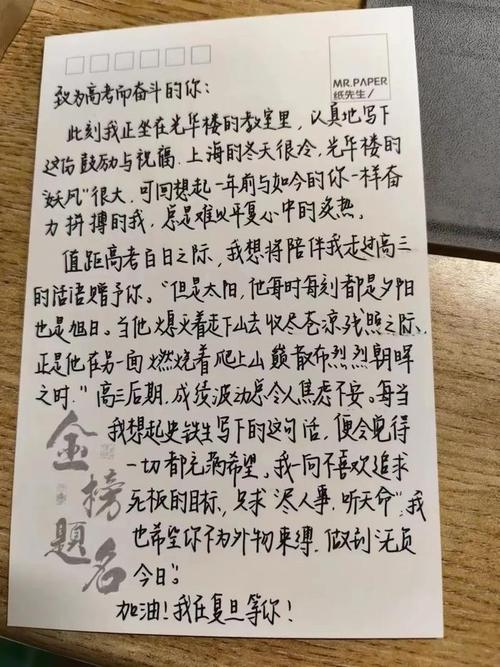 MR.PAPER
纸先生/
致为高考而奋斗的你：
此刻我正坐在光华楼的教室里，认真地写下
这份鼓励与祝福。上海的冬天很冷，光华楼的
"妖风"很大，可回想起一年前与如今的你一样奋
力拼搏的我，总是难以平复心中的炙热。
值距高考百日之际，我想将陪伴我走过高三
的话语赠予你。"但是太阳，他每时每刻都是夕阳
也是旭日。当他熄灭着走下山去收尽苍凉残照之际，
正是他在另一面燃烧着爬上山巅散布烈烈朝晖
之时。"高三后期，成绩波动总令人焦虑不安。每当
我想起史铁生写下的这句话，便会觉得
一切都充满希望。我一向不喜欢追求
死板的目标，只求"尽人事，听天命"，我
也希望你不为外物束缚，做到"无负
今日"。
加油！我在复旦等你！
金榜题名